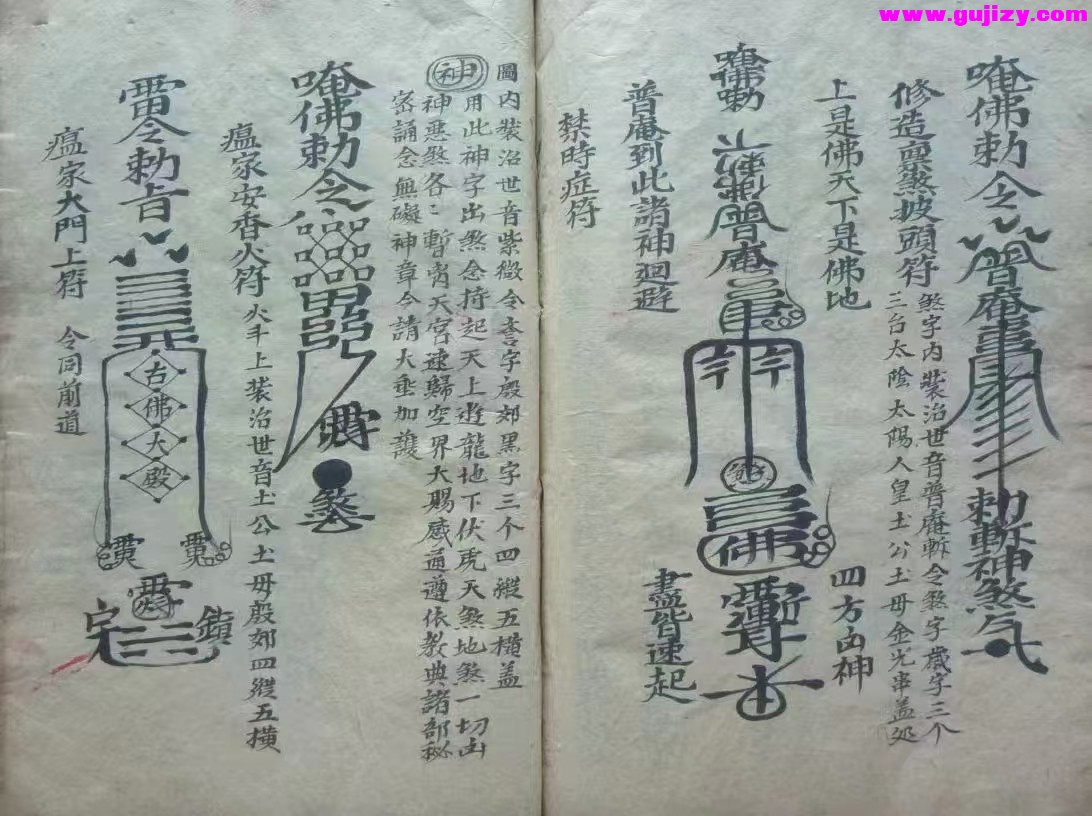 www.gujizy.com
唵佛勅令
普庵
勅斬神煞气
修造禀煞披頭符
煞字内裝治世音普庵斬令煞字歲字三个
三台太陰太陽人皇土公土毋金光串盖処
上是佛天下是佛地
四方凶神
唵佛勅
普庵
佛
普庵到此諸神廻避
盡皆速起
禁時症符
圖内裝治世音紫微令
字殷郊黑字三个四縱五橫盖
神
用此神字出煞念持起天上遊龍地下伏虎天煞地煞一切凶
神悪煞各〻暫离天宫速歸空界大賜感通遵依教典諸部秘
密誦念無礙神章今請大垂加護
唵佛勅令
瘟家安香火符
火斗上裝治世音土公土毋殷郊四縱五橫
雷令勅旨
古佛大殿
鎮
宅
瘟家大門上符
令同前道